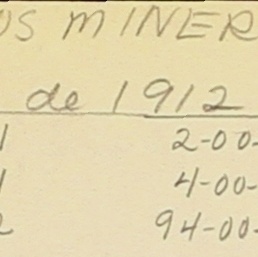 US MINER
de 1912
1 2-00-
1 4-00-
2 94-00-